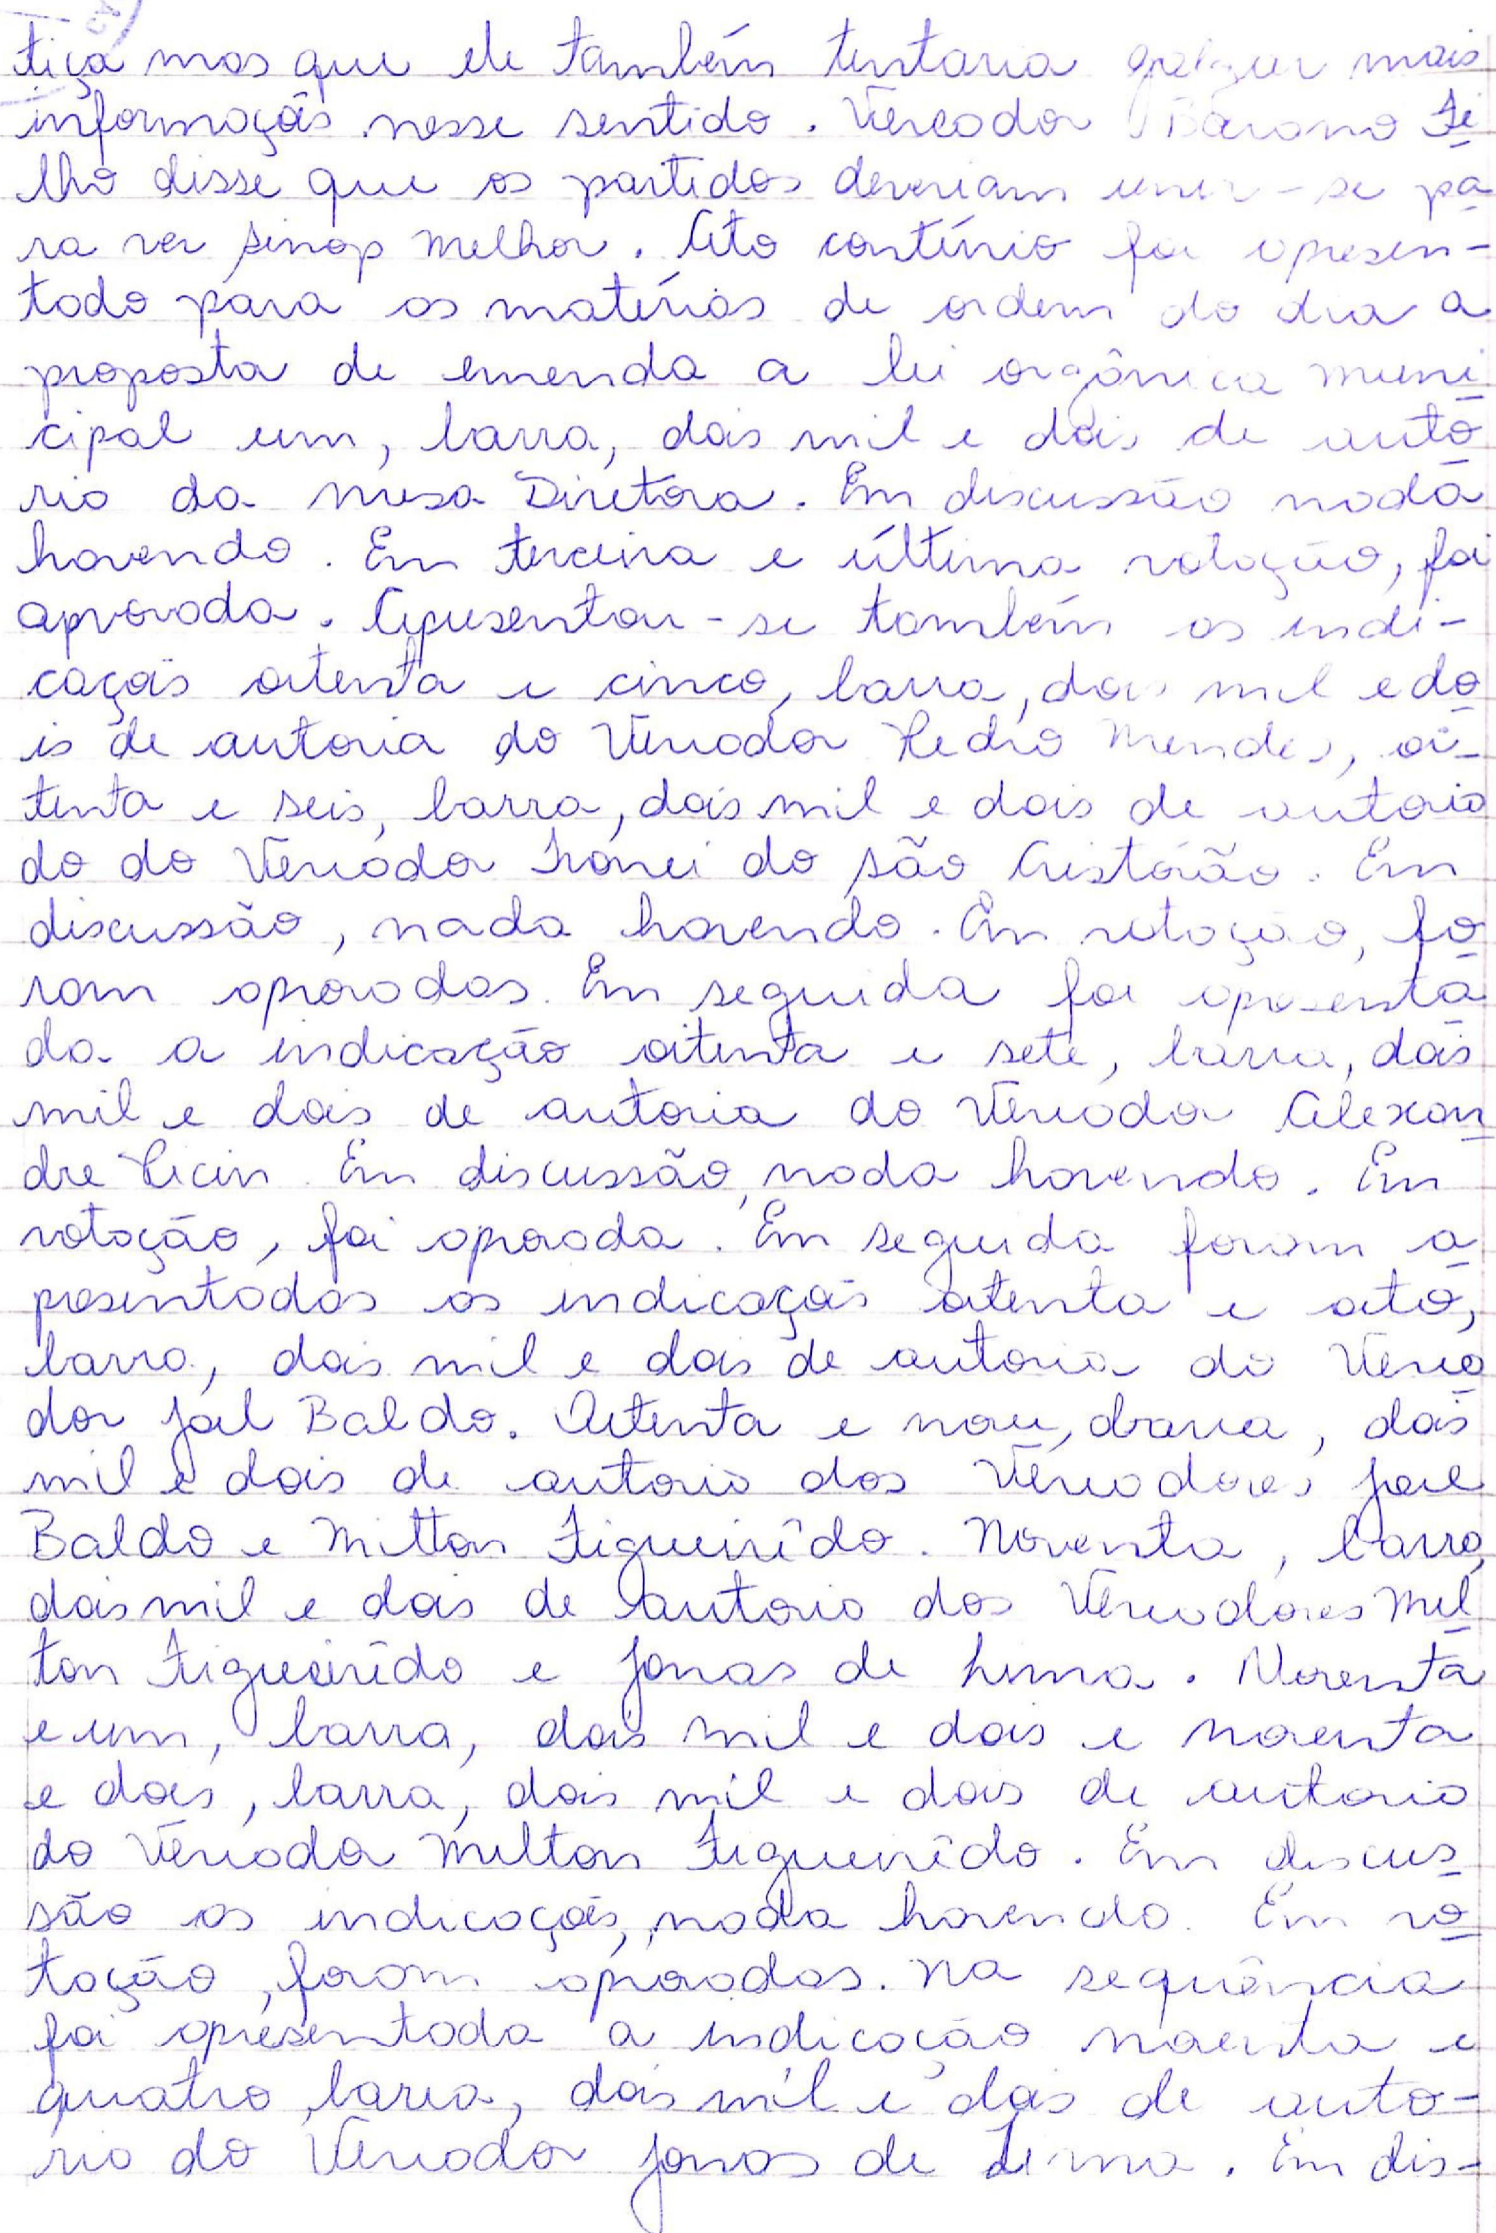 tiça mas que ele também tentaria galgar mais
informações nesse sentido. Vereador Barano Fi
lho disse que os partidos deveriam unir-se pa
ra ver Sinop melhor. Ato contínuo foi apresen-
tado para as matérias de ordem do dia a
proposta de emenda a lei orgânica muni
cipal um, barra, dois mil e dois de auto
ria da mesa Diretora. Em discussão nada
havendo. Em terceira e última votação, foi
aprovada. Apresentou-se também as indi-
cações oitenta e cinco, barra, dois mil e do
is de autoria do Vereador Pedro Mendes, oi-
tenta e seis, barra, dois mil e dois de autoria
do do Vereador Franei do São Cristóvão. Em
discussão, nada havendo. Em votação, fo
ram aprovadas. Em seguida foi apresenta
da a indicação oitenta e sete, barra, dois
mil e dois de autoria do Vereador Alexan
dre Picin. Em discussão, nada havendo. Em
votação, foi aprovada. Em seguida foram a
presentadas as indicações oitenta e oito,
barra, dois mil e dois de autoria do Verea
dor Joel Baldo. Oitenta e nove, barra, dois
mil e dois de autoria dos Vereadores Joel
Baldo e Milton Figueirêdo. Noventa, barra,
dois mil e dois de autoria dos Vereadores Mil
ton Figueirêdo e Jonas de Lima. Noventa
e um, barra, dois mil e dois e noventa
e dois, barra, dois mil e dois de autoria
do Vereador Milton Figueirêdo. Em discus
são as indicações, nada havendo. Em vo
tação, foram aprovadas. Na sequência
foi apresentada a indicação noventa e
quatro, barra, dois mil e dois de auto-
ria do Vereador Jonas de Lima. Em dis-